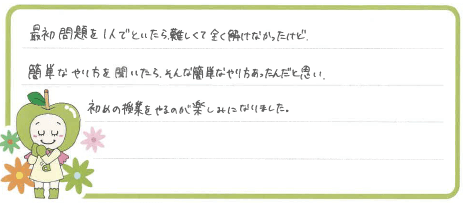 最初問題を1人でといたら難しくて全く解けなかったけど、
簡単なやり方を聞いたら、そんな簡単なやり方あったんだと思い、
初めの授業をやるのが楽しみになりました。